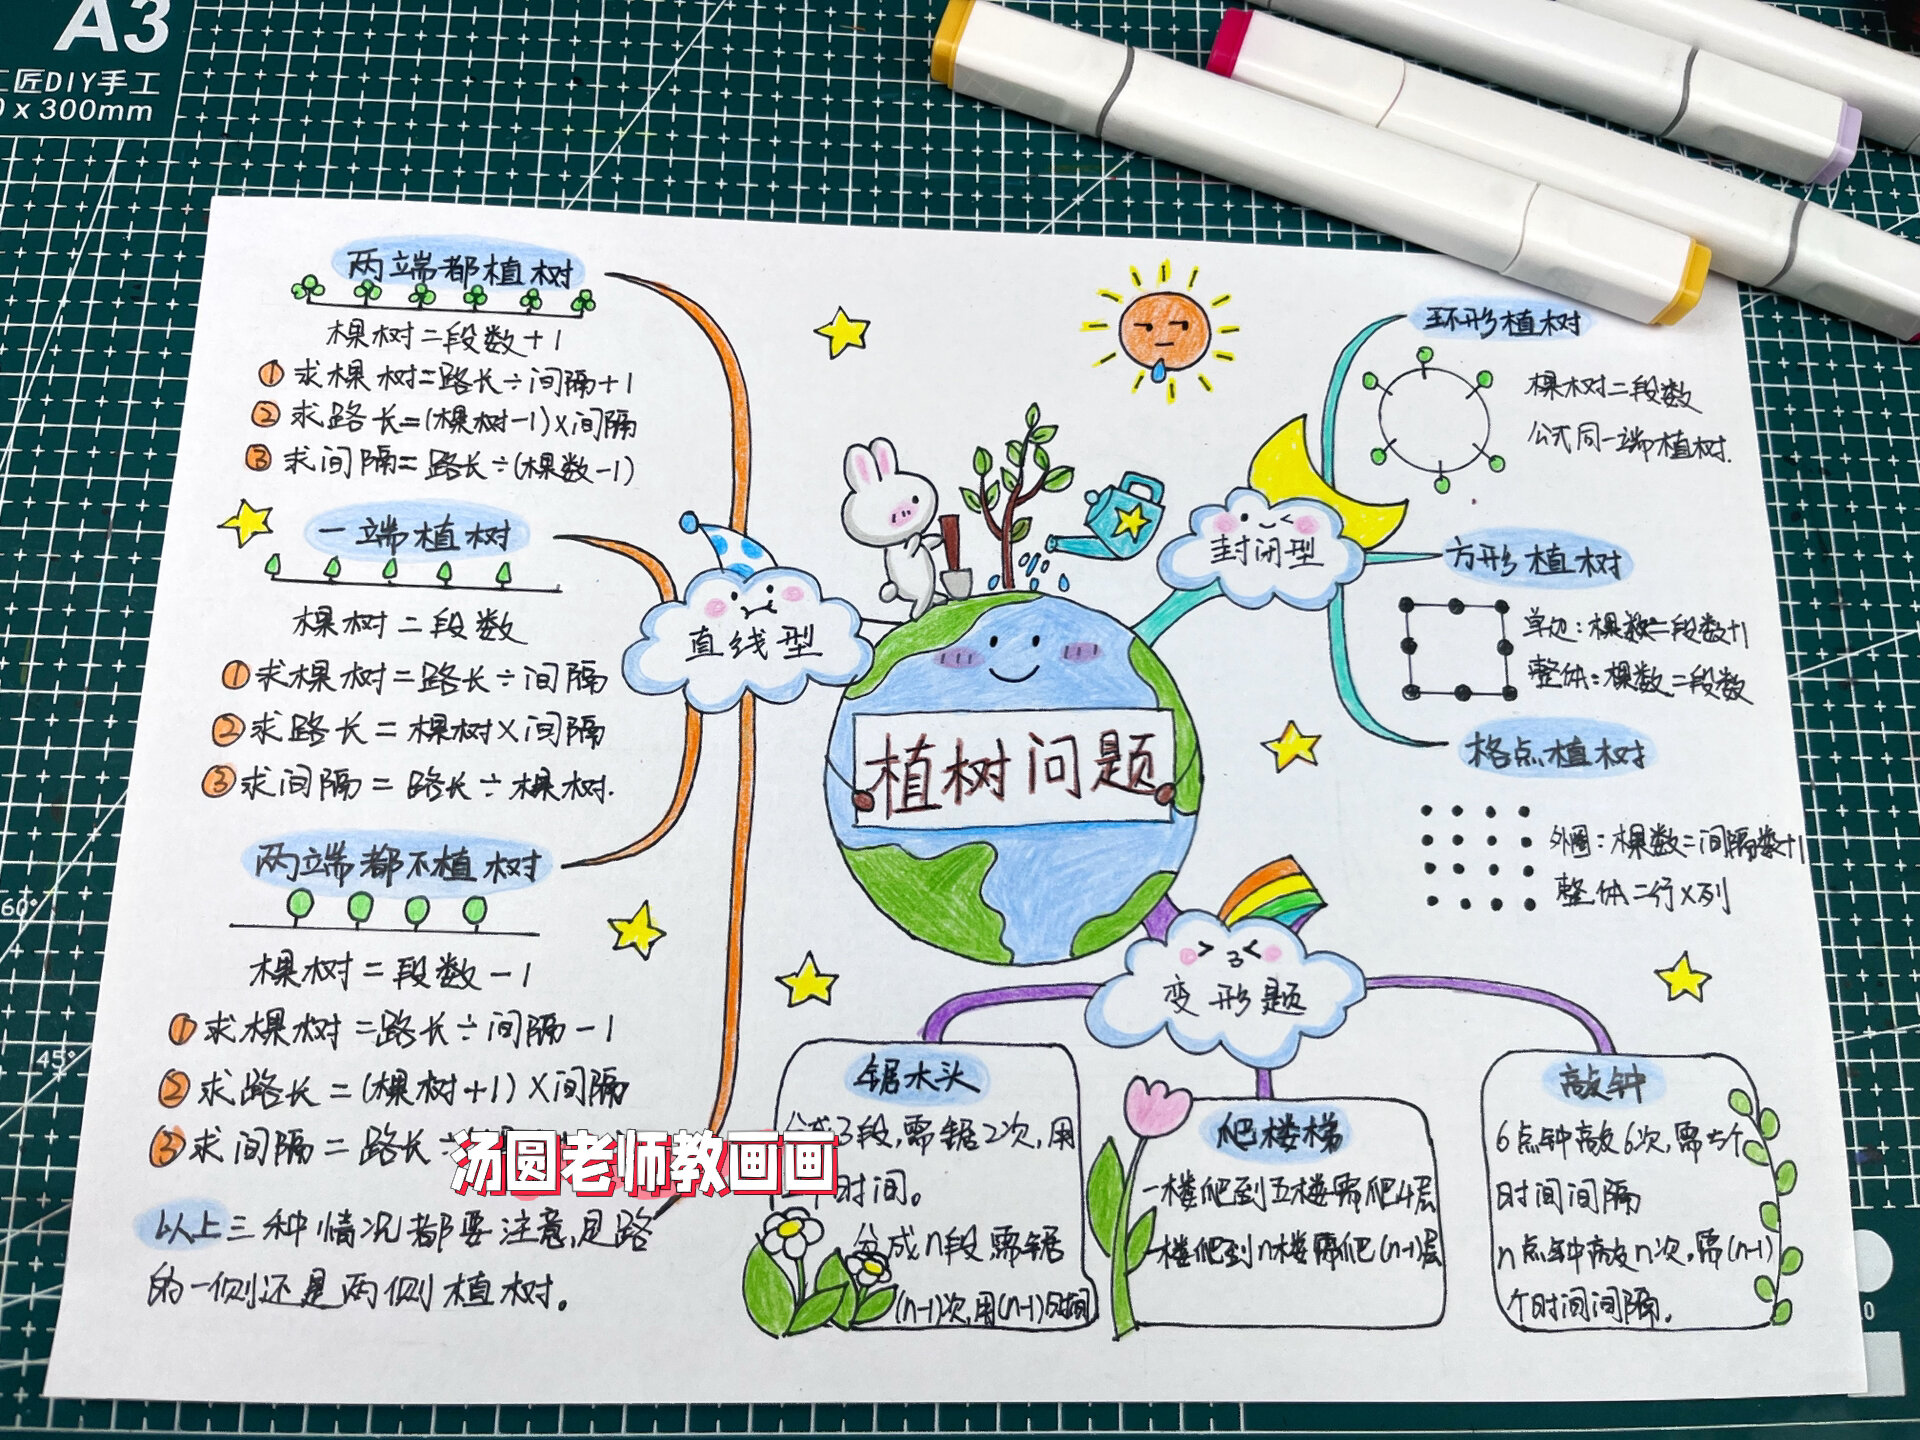 A3
工匠DIY手工
0 x 300mm
60°
45°
植树问题
直线型
两端都植树
棵树=段数+1
①求棵树=路长÷间隔+1
②求路长=(棵树-1)×间隔
③求间隔=路长÷(棵数-1)
一端植树
棵树=段数
①求棵树=路长÷间隔
②求路长=棵树×间隔
③求间隔=路长÷棵树.
两端都不植树
棵树=段数-1
①求棵树=路长÷间隔-1
②求路长=(棵树+1)×间隔
③求间隔=路长÷
以上三种情况都要注意,是路
的一侧还是两侧植树。
封闭型
环形植树
棵树=段数
公式同一端植树.
方形植树
单边:棵数=段数+1
整体:棵数=段数
格点植树
外圈:棵数=间隔数+1
整体=行×列
变形题
锯木头
分成3段,需锯2次,用
时间。
分成n段需锯
(n-1)次,用(n-1)时间
爬楼梯
一楼爬到五楼需爬4层
一楼爬到n楼需爬(n-1)层
敲钟
6点钟敲6次,需5个
时间间隔
n点钟敲n次,需(n-1)
个时间间隔.
汤圆老师教画画